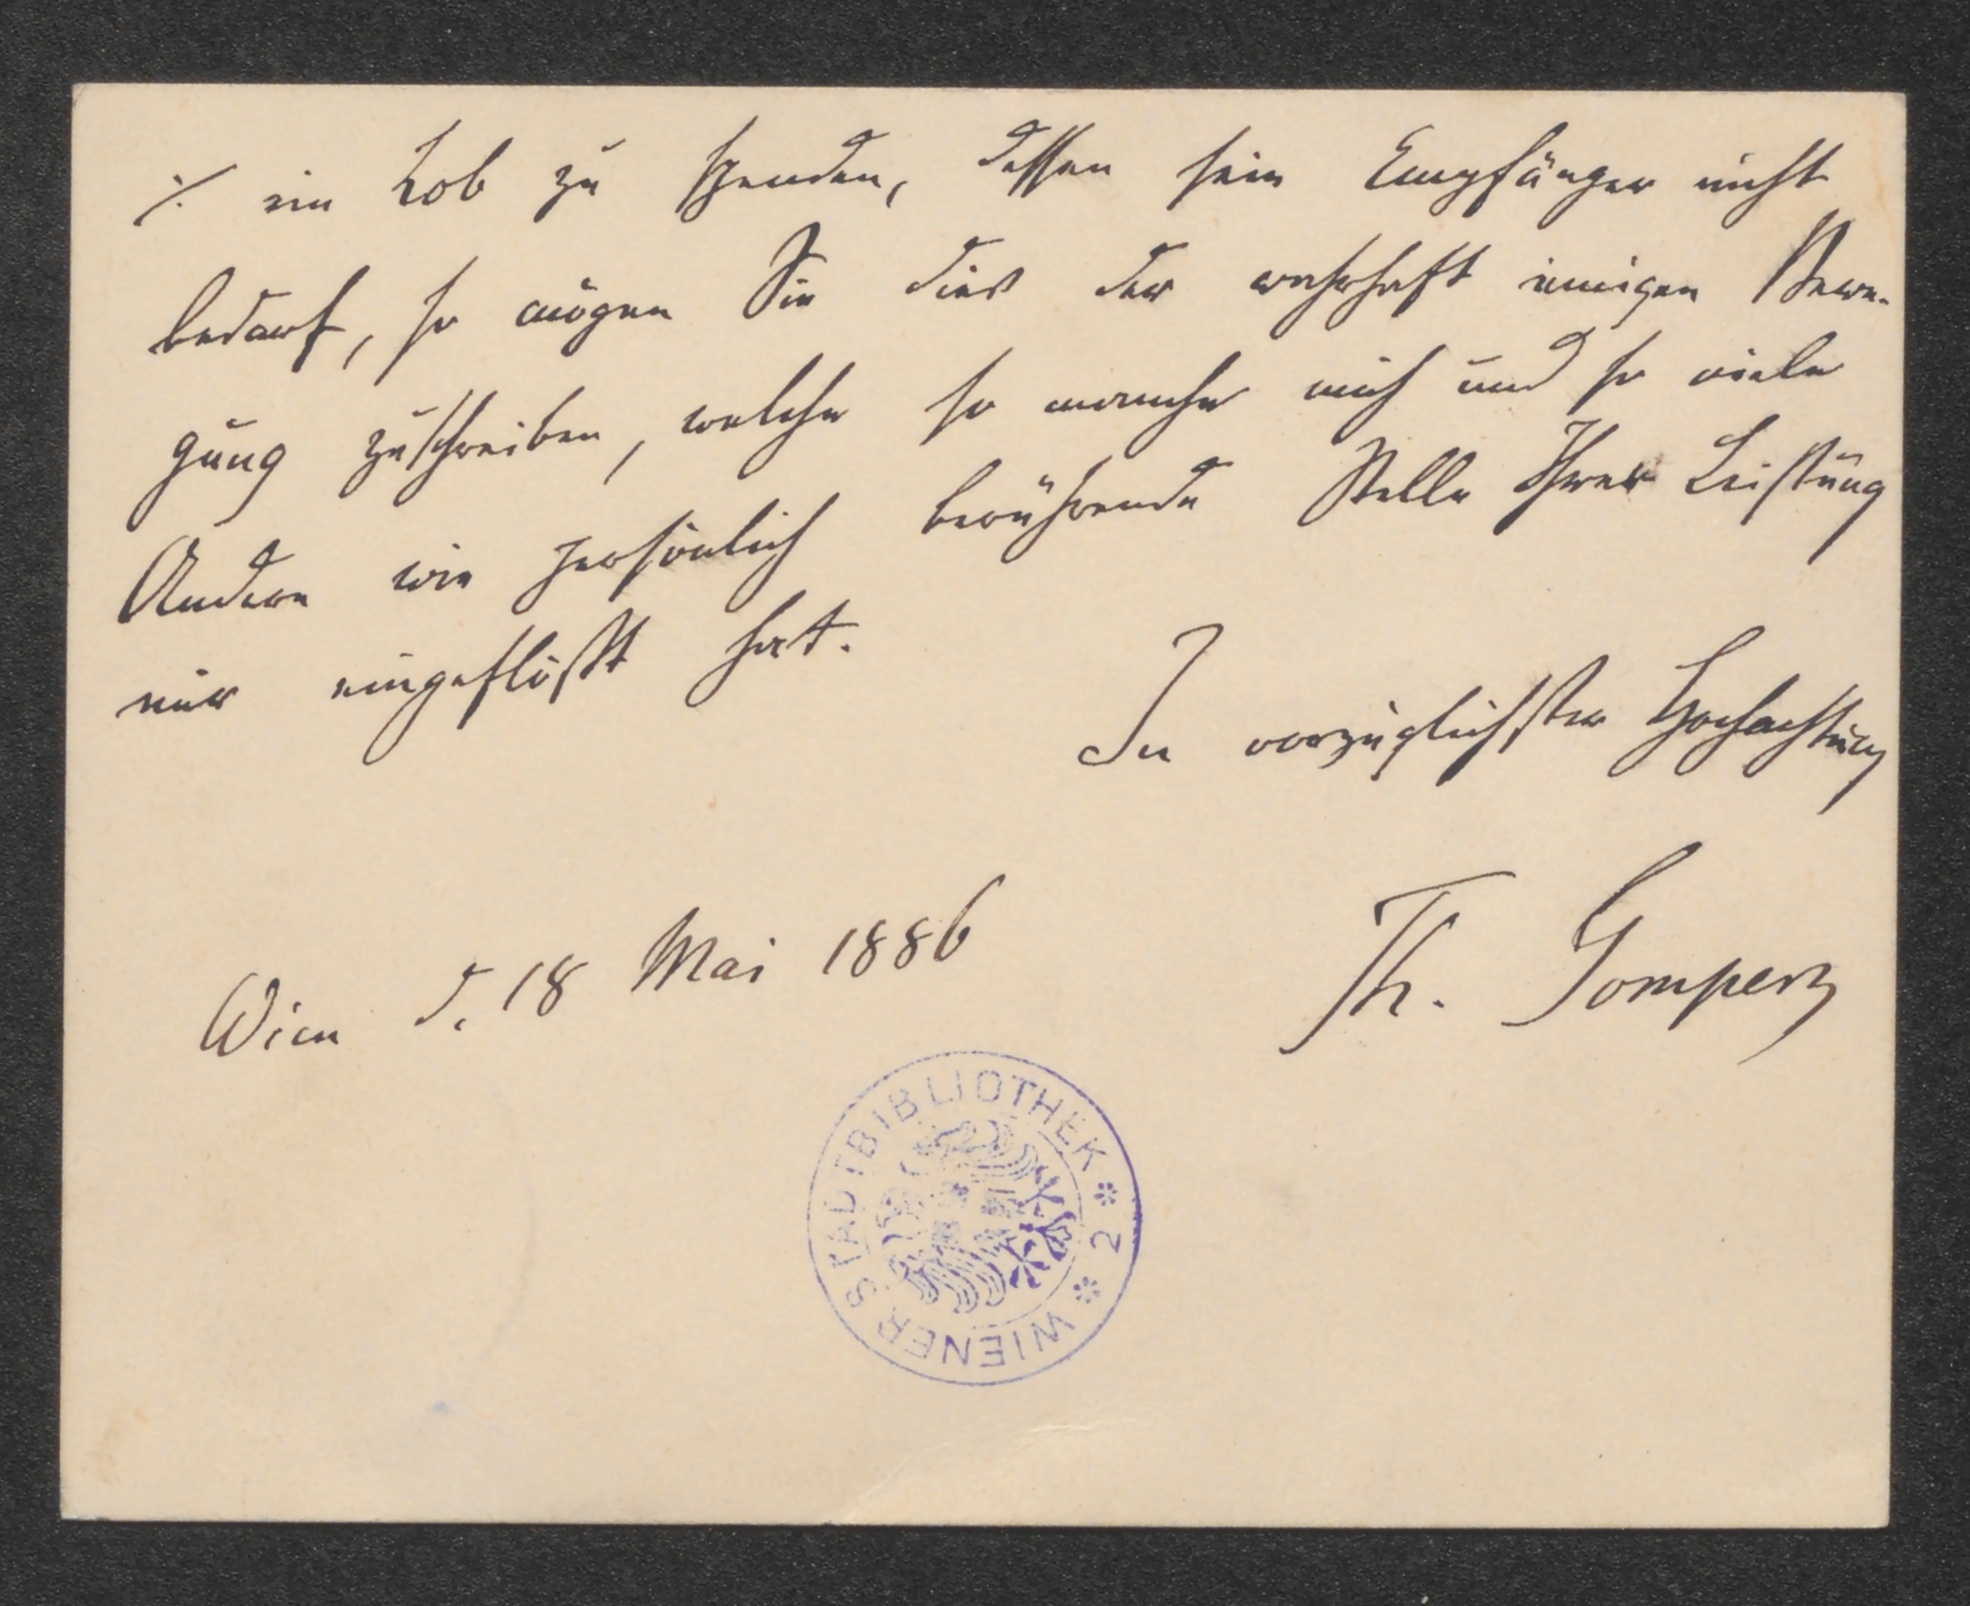 ./. ein Lob zu spenden, dessen sein Empfänger nicht
bedarf, so mögen Sie dies der wahrhaft innigen Bewe-
gung zuschreiben, welche so manche mich und so viele
Andere wie persönlich berührende Stelle Ihrer Leistung
mir eingeflößt hat.
In vorzüglichster Hochachtung
Th. Gomperz
Wien d. 18 Mai 1886
WIENER STADTBIBLIOTHEK * 2 *